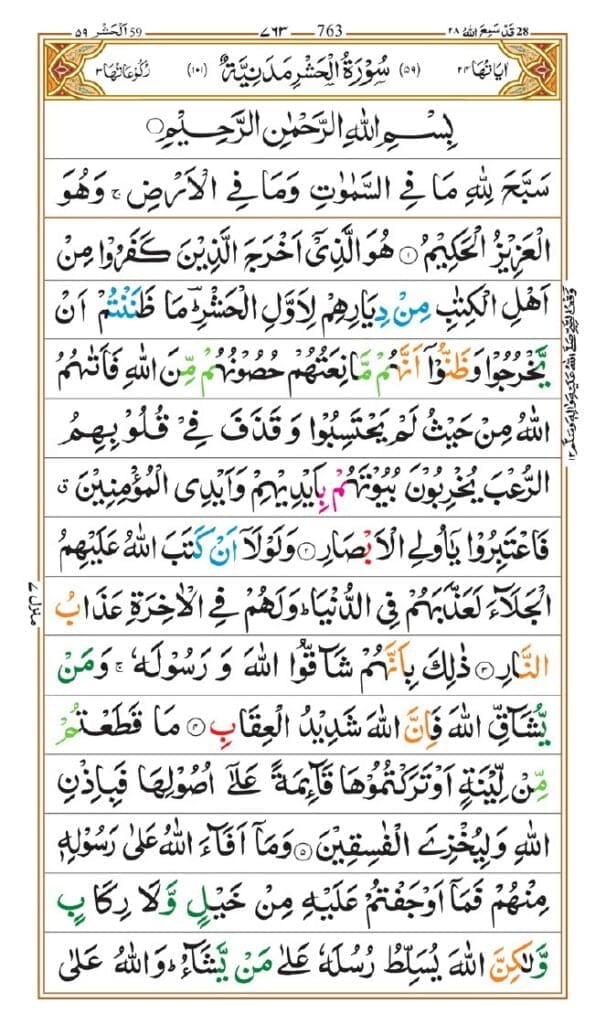 28 قَدْ سَمِعَ اللّٰهُ ٢٨ 763 ٧٦٣ 59 اَلْحَشْر ٥٩
اٰيَاتُهَا ٢٤ (٥٩) سُوْرَةُ الْحَشْرِ مَدَنِيَّةٌ (١٠١) رُكُوْعَاتُهَا ٣
بِسْمِ اللّٰهِ الرَّحْمٰنِ الرَّحِيْمِ
سَبَّحَ لِلّٰهِ مَا فِي السَّمٰوٰتِ وَمَا فِي الْاَرْضِ ۚ وَهُوَ
الْعَزِيْزُ الْحَكِيْمُ ١ هُوَ الَّذِيْۤ اَخْرَجَ الَّذِيْنَ كَفَرُوْا مِنْ
اَهْلِ الْكِتٰبِ مِنْ دِيَارِهِمْ لِاَوَّلِ الْحَشْرِ ؕ مَا ظَنَنْتُمْ اَنْ
يَّخْرُجُوْا وَظَنُّوْۤا اَنَّهُمْ مَّانِعَتُهُمْ حُصُوْنُهُمْ مِّنَ اللّٰهِ فَاَتٰىهُمُ
اللّٰهُ مِنْ حَيْثُ لَمْ يَحْتَسِبُوْا وَقَذَفَ فِيْ قُلُوْبِهِمُ
الرُّعْبَ يُخْرِبُوْنَ بُيُوْتَهُمْ بِاَيْدِيْهِمْ وَاَيْدِي الْمُؤْمِنِيْنَ ۗ
فَاعْتَبِرُوْا يٰۤاُولِي الْاَبْصَارِ ٢ وَلَوْلَاۤ اَنْ كَتَبَ اللّٰهُ عَلَيْهِمُ
الْجَلَآءَ لَعَذَّبَهُمْ فِي الدُّنْيَا ؕ وَلَهُمْ فِي الْاٰخِرَةِ عَذَابُ
النَّارِ ٣ ذٰلِكَ بِاَنَّهُمْ شَآقُّوا اللّٰهَ وَرَسُوْلَهٗ ۚ وَمَنْ
يُّشَآقِّ اللّٰهَ فَاِنَّ اللّٰهَ شَدِيْدُ الْعِقَابِ ٤ مَا قَطَعْتُمْ
مِّنْ لِّيْنَةٍ اَوْ تَرَكْتُمُوْهَا قَآئِمَةً عَلٰۤى اُصُوْلِهَا فَبِاِذْنِ
اللّٰهِ وَلِيُخْزِيَ الْفٰسِقِيْنَ ٥ وَمَاۤ اَفَآءَ اللّٰهُ عَلٰى رَسُوْلِهٖ
مِنْهُمْ فَمَاۤ اَوْجَفْتُمْ عَلَيْهِ مِنْ خَيْلٍ وَّلَا رِكَابٍ
وَّلٰكِنَّ اللّٰهَ يُسَلِّطُ رُسُلَهٗ عَلٰى مَنْ يَّشَآءُ ؕ وَاللّٰهُ عَلٰى